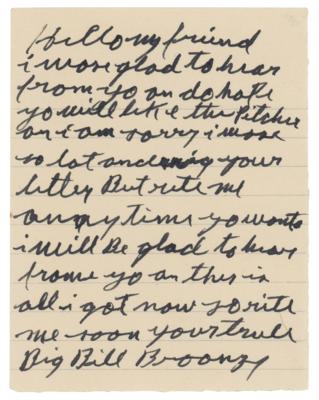 Hello my friend
i wose glad to hear
from yo an do hope
yo will like the Pitchie
an i am sorry i wose
so lat and your
letter But rite me
anny time yo wants
i will Be glad to hear
frome yo an this is
all i got now so rite
me soon your trule
Big Bill Broonzy